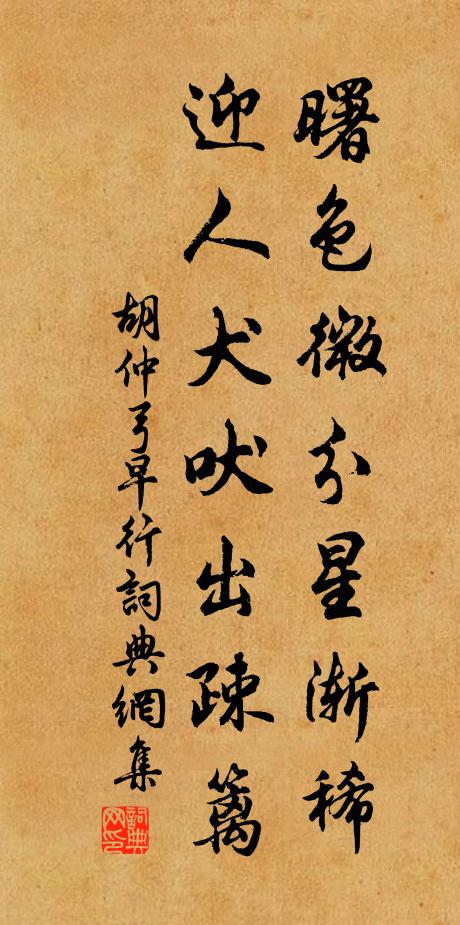 曙色微分星渐稀
迎人犬吠出疎篱
胡仲弓早行詞典網集
詞典網印